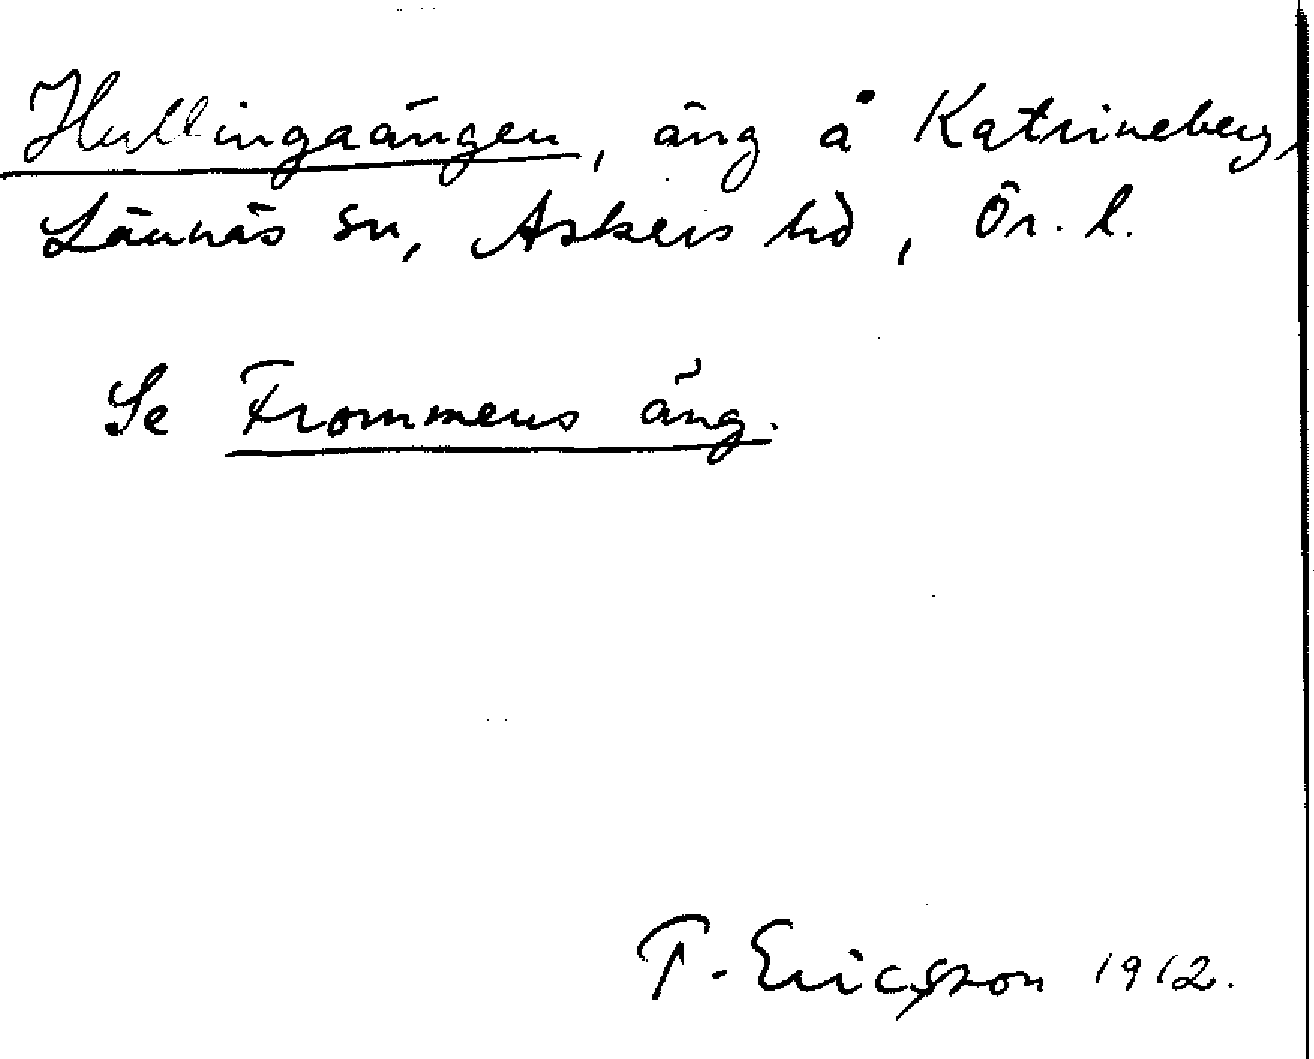 Hullingaängen, äng å Katrineberg,
Lännäs sn, Askers hd, Ör. l.
Se Frommens äng.
T. Ericsson 1912.